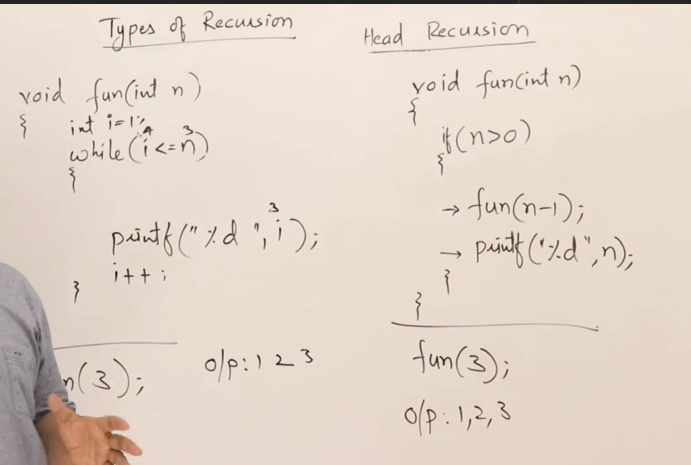 Types of Recursion
void fun(int n)
{
int i=1;
4
3
while(i<=n)
{
3
printf("%d ",i);
i++;
}
n(3);
o/p: 1 2 3
Head Recursion
void fun(int n)
{
if(n>0)
{
→ fun(n-1);
→ printf("%d",n);
}
}
fun(3);
o/p: 1,2,3